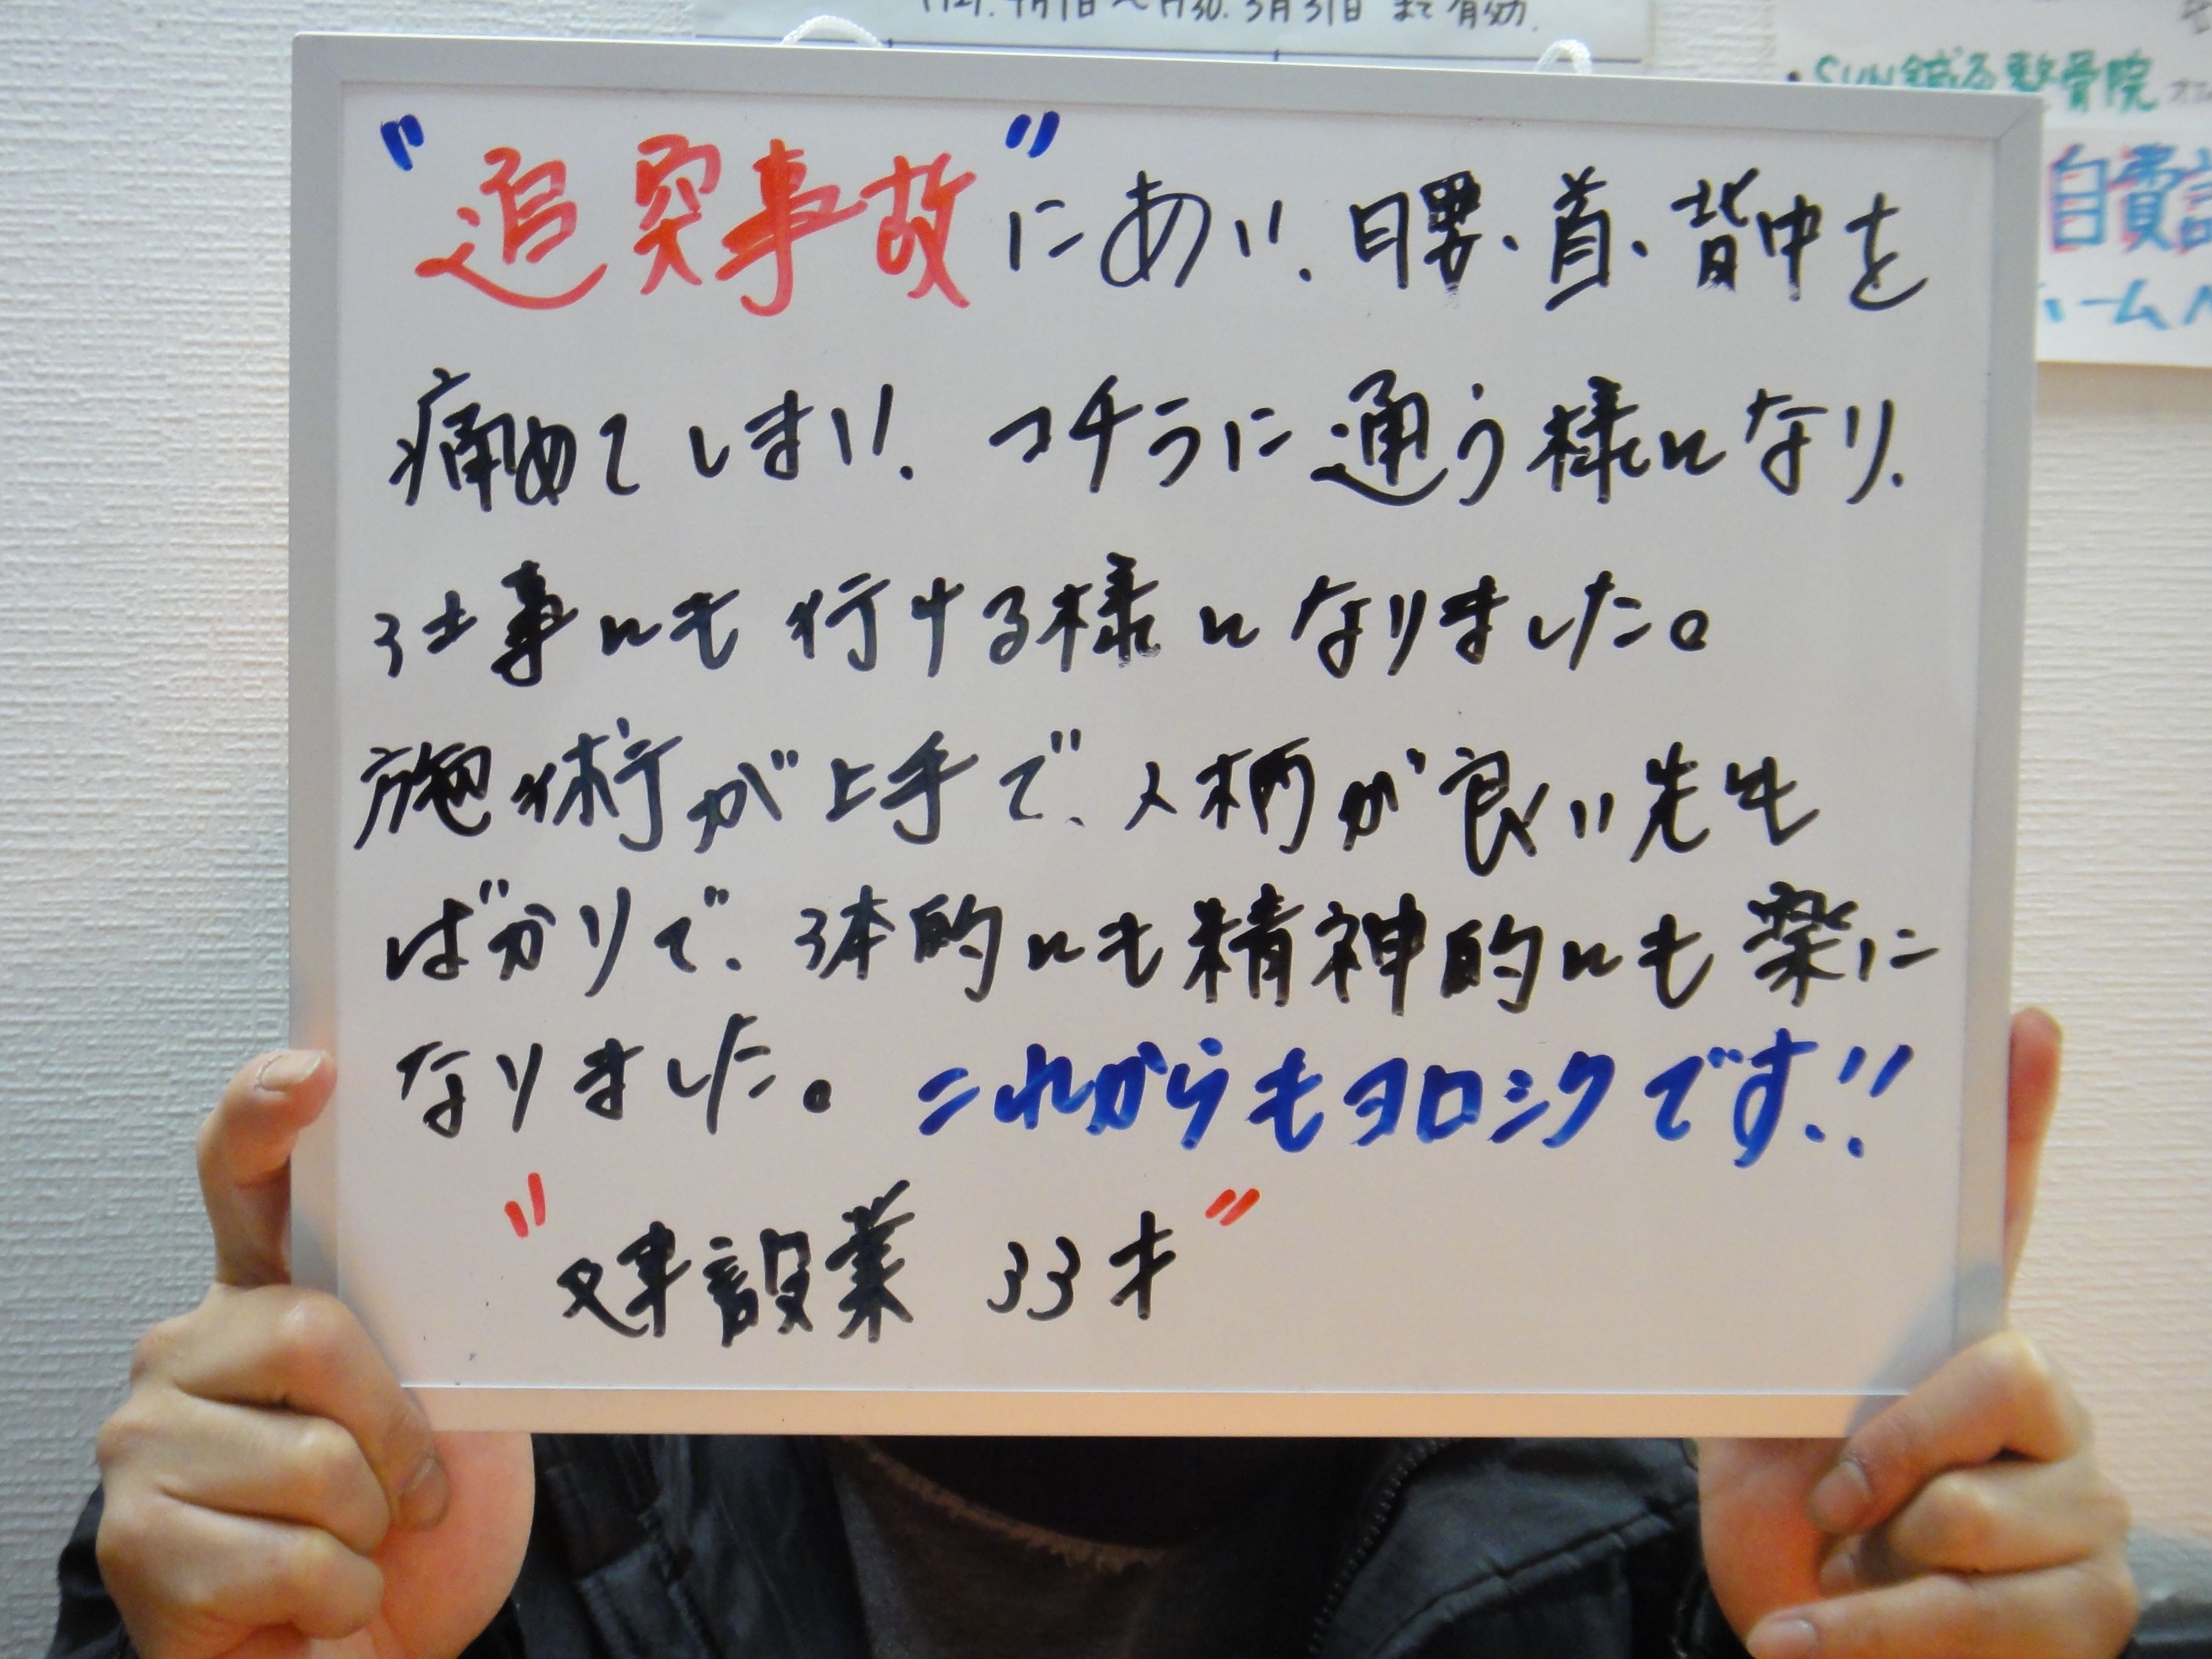 H27.4月1日～H30.3月31日 まで有効.
・SUN鍼灸整骨院
自費
ホームペ
"追突事故"にあい、腰・首・背中を
痛めてしまい、コチラに通う様になり、
仕事にも行ける様になりました。
施術が上手で、人柄が良い先生
ばかりで、体的にも精神的にも楽に
なりました。これからもヨロシクです!!
"建設業 33才"